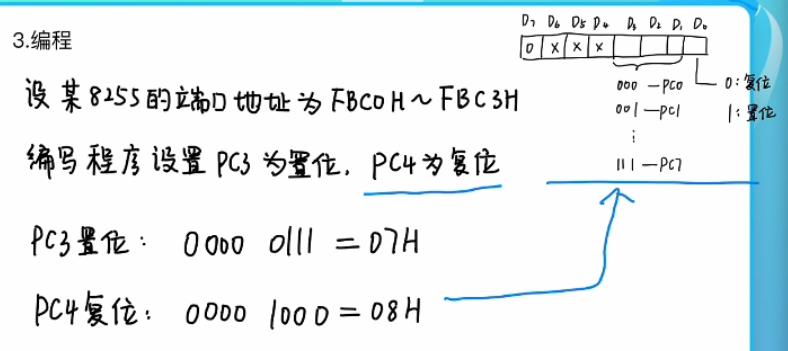 3.编程
设某8255的端口地址为FBC0H～FBC3H
编写程序设置PC3为置位，PC4为复位
PC3置位： 0000 0111 = 07H
PC4复位： 0000 1000 = 08H
D7 D6 D5 D4 D3 D2 D1 D0
0 X X X
000 —PC0 0:复位
001 —PC1 1:置位
⋮
111 —PC7